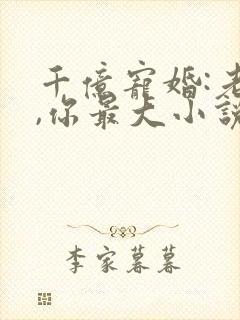 千億寵婚:老
,你最大小說
李家暮暮